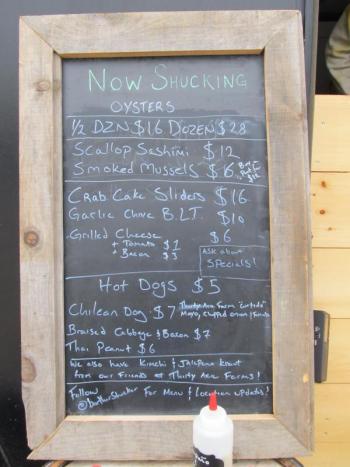 Now Shucking
OYSTERS
1/2 DZN $16 Dozen $28
Scallop Sashimi $12
Smoked Mussels $6
Crab Cake Sliders $16
Garlic Chive B.L.T. $10
Grilled Cheese $6
+ Tomato $1
+ Bacon $3
ASK about
SPECIALS!
Hot Dogs $5
Chilean Dog $7 Thirty Acre Farm "Curtido"
Mayo, Chopped onion & Tomato
Braised Cabbage & Bacon $7
Thai Peanut $6
We also have Kimchi & Jalapeno Kraut
from our friends at Thirty Acre Farms!
Follow
For Menu & location updates!